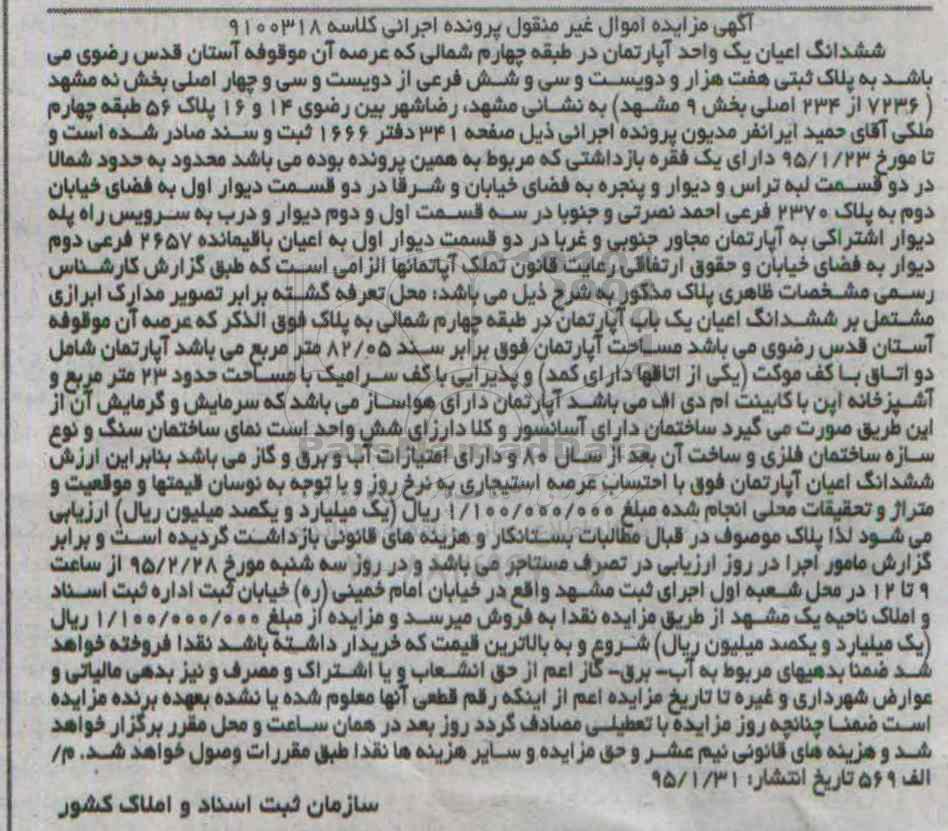 آگهی مزایده اموال غیر منقول پرونده اجرائی کلاسه ۹۱۰۰۳۱۸
ششدانگ اعیان یک واحد آپارتمان در طبقه چهارم شمالی که عرصه آن موقوفه آستان قدس رضوی می
باشد به پلاک ثبتی هفت هزار و دویست و سی و شش فرعی از دویست و سی و چهار اصلی بخش نه مشهد
( ۷۲۳۶ از ۲۳۴ اصلی بخش ۹ مشهد) به نشانی مشهد، رضاشهر بین رضوی ۱۴ و ۱۶ پلاک ۵۶ طبقه چهارم
ملکی آقای حمید ایرانفر مدیون پرونده اجرائی ذیل صفحه ۳۴۱ دفتر ۱۶۶۶ ثبت و سند صادر شده است و
تا مورخ ۹۵/۱/۲۳ دارای یک فقره بازداشتی که مربوط به همین پرونده بوده می باشد محدود به حدود شمالا
در دو قسمت لبه تراس و دیوار و پنجره به فضای خیابان و شرقا در دو قسمت دیوار اول به فضای خیابان
دوم به پلاک ۲۳۷۰ فرعی احمد نصرتی و جنوبا در سه قسمت اول و دوم دیوار و درب به سرویس راه پله
دیوار اشتراکی به آپارتمان مجاور جنوبی و غربا در دو قسمت دیوار اول به اعیان باقیمانده ۲۶۵۷ فرعی دوم
دیوار به فضای خیابان و حقوق ارتفاقی رعایت قانون تملک آپاتمانها الزامی است که طبق گزارش کارشناس
رسمی مشخصات ظاهری پلاک مذکور به شرح ذیل می باشد: محل تعرفه گشته برابر تصویر مدارک ابرازی
مشتمل بر ششدانگ اعیان یک باب آپارتمان در طبقه چهارم شمالی به پلاک فوق الذکر که عرصه آن موقوفه
آستان قدس رضوی می باشد مساحت آپارتمان فوق برابر سند ۸۲/۰۵ متر مربع می باشد آپارتمان شامل
دو اتاق با کف موکت (یکی از اتاقها دارای کمد) و پذیرایی با کف سرامیک با مساحت حدود ۲۳ متر مربع و
آشپزخانه اپن با کابینت ام دی اف می باشد آپارتمان دارای هواساز می باشد که سرمایش و گرمایش آن از
این طریق صورت می گیرد ساختمان دارای آسانسور و کلا دارزای شش واحد است نمای ساختمان سنگ و نوع
سازه ساختمان فلزی و ساخت آن بعد از سال ۸۰ و دارای امتیازات آب و برق و گاز می باشد بنابراین ارزش
ششدانگ اعیان آپارتمان فوق با احتساب عرصه استیجاری به نرخ روز و با توجه به نوسان قیمتها و موقعیت و
متراژ و تحقیقات محلی انجام شده مبلغ ۱/۱۰۰/۰۰۰/۰۰۰ ریال (یک میلیارد و یکصد میلیون ریال) ارزیابی
می شود لذا پلاک موصوف در قبال مطالبات بستانکار و هزینه های قانونی بازداشت گردیده است و برابر
گزارش مامور اجرا در روز ارزیابی در تصرف مستاجر می باشد و در روز سه شنبه مورخ ۹۵/۲/۲۸ از ساعت
۹ تا ۱۲ در محل شعبه اول اجرای ثبت مشهد واقع در خیابان امام خمینی (ره) خیابان ثبت اداره ثبت اسناد
و املاک ناحیه یک مشهد از طریق مزایده نقدا به فروش میرسد و مزایده از مبلغ ۱/۱۰۰/۰۰۰/۰۰۰ ریال
(یک میلیارد و یکصد میلیون ریال) شروع و به بالاترین قیمت که خریدار داشته باشد نقدا فروخته خواهد
شد ضمنا بدهیهای مربوط به آب- برق- گاز اعم از حق انشعاب و یا اشتراک و مصرف و نیز بدهی مالیاتی و
عوارض شهرداری و غیره تا تاریخ مزایده اعم از اینکه رقم قطعی آنها معلوم شده یا نشده بعهده برنده مزایده
است ضمنا چنانچه روز مزایده با تعطیلی مصادف گردد روز بعد در همان ساعت و محل مقرر برگزار خواهد
شد و هزینه های قانونی نیم عشر و حق مزایده و سایر هزینه ها نقدا طبق مقررات وصول خواهد شد. م/
الف ۵۶۹ تاریخ انتشار: ۹۵/۱/۳۱
سازمان ثبت اسناد و املاک کشور